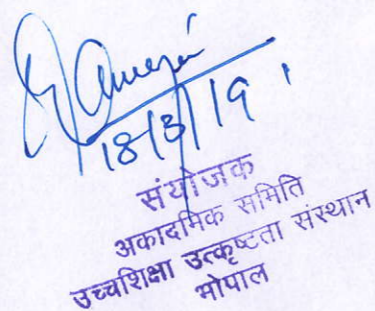 18/3/19
संयोजक
अकादमिक समिति
उच्चशिक्षा उत्कृष्टता संस्थान
भोपाल